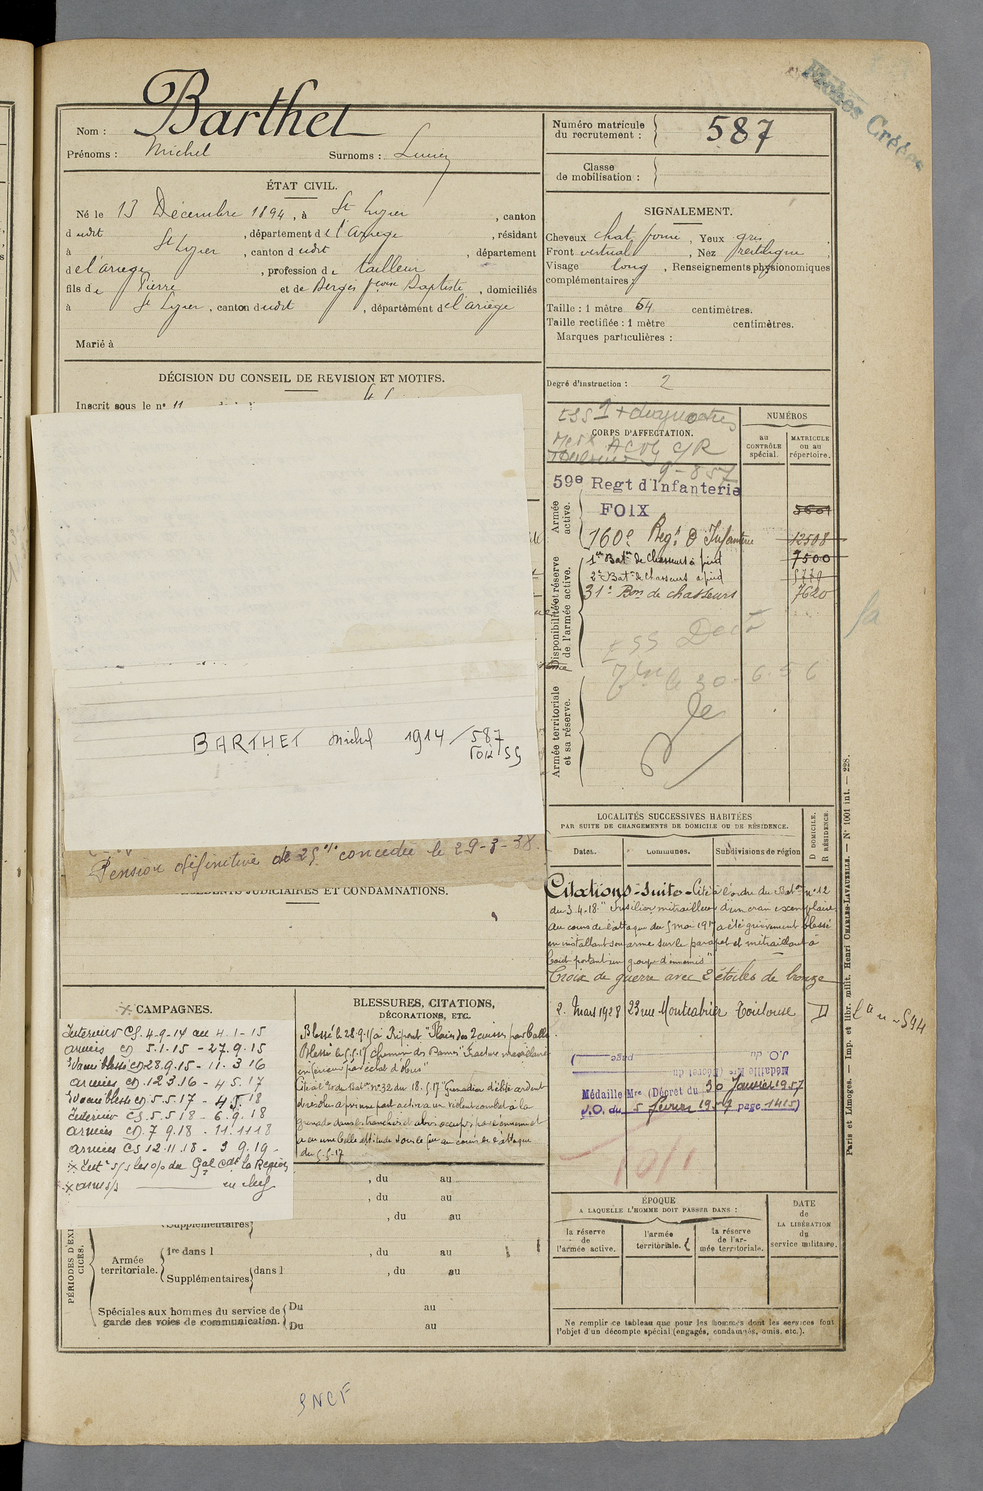 Fiches Créées
Nom : Barthet
Prénoms : Michel Surnoms :
ÉTAT CIVIL.
Né le 13 Décembre 1894, à St Lizier, canton
dudit, département de l'Ariège, résidant
à St Lizier, canton dudit, département
de l'ariège, profession de tailleur
fils de Pierre et de Bergès Jean Baptiste, domiciliés
à St Lizier, canton dudit, département de l'ariège
Marié à
DÉCISION DU CONSEIL DE REVISION ET MOTIFS.
Inscrit sous le n° 11
BARTHET Michel 1914/587
FOIX
Pension définitive de 25 % concedée le 29-8-38.
JUDICIAIRES ET CONDAMNATIONS.
CAMPAGNES.
Interieur CS. 4-9-14 au 4-1-15
armées CD 5.1.15 - 27.9.15
Evacué blessé CD 28.9.15 - 11.3.16
armées CD. 12.3.16 - 4.5.17
Evacué blessé CD 5.5.17 - 4.5.18
Interieur CS. 5.5.18 - 6.9.18
armées CD. 7.9.18 - 11.11.18
armées CS 12.11.18 - 3.9.19
en chef
BLESSURES, CITATIONS,
DÉCORATIONS, ETC.
Blessé le 28.9.15 à Plaie des 2 cuisses par balle
Blessé le 5.5.17 chemin des Dames "Fracture
inférieur par éclat d'obus"
Cité à l'ordre du Bat^on N° 32 du 18.5.17 "Grenadier d'élite ardent
a pris une part active à un violent combat à la
grenade dans les tranchées et abris occupés par l'ennemi et
a eu une belle attitude sous le feu au cours de l'attaque
du 5-5-17
, du au
, du au
Supplémentaires
PÉRIODES D'EXERCICES.
Armée territoriale.
1re dans l , du au
Supplémentaires dans l , du au
Spéciales aux hommes du service de garde des voies de communication.
Du au
Du au
SNCF
Numéro matricule du recrutement : 587
Classe de mobilisation :
SIGNALEMENT.
Cheveux chat. foncé, Yeux gris
Front vertical, Nez rectiligne
Visage long, Renseignements physionomiques
complémentaires :
Taille : 1 mètre 64 centimètres.
Taille rectifiée : 1 mètre centimètres.
Marques particulières :
Degré d'instruction : 2
CORPS D'AFFECTATION.
NUMÉROS
au CONTRÔLE spécial.
MATRICULE ou au répertoire.
Armée active.
59e Regt d'Infanterie
FOIX
160e Regt d'Infanterie 12508
Disponibilité et réserve de l'armée active.
1er Bat^on de Chasseurs à pied 7500
2e Bat^on de Chasseurs à pied
31e Bon de chasseurs 7620
Armée territoriale et sa réserve.
LOCALITÉS SUCCESSIVES HABITÉES
PAR SUITE DE CHANGEMENTS DE DOMICILE OU DE RÉSIDENCE.
Dates. Communes. Subdivisions de région
D DOMICILE. R RÉSIDENCE.
Citations - suite - Cité à l'ordre du Bat^on n° 12
du 3.4.18 : "Fusilier mitrailleur d'un cran exemplaire
au cours de l'attaque du 5 mai 1917 a été grièvement blessé
en installant son arme sur le parapet et mitraillant à
bout portant un groupe d'ennemis"
Croix de guerre avec 2 étoiles de bronze
2. Mars 1928 23 rue Montcabrier Toulouse D
page
J.O. du
Médaille Mre (Décret du
Médaille Mre (Décret du 30 Janvier 1957
J.O. du 5 février 1957 page 1415)
ÉPOQUE
A LAQUELLE L'HOMME DOIT PASSER DANS :
la réserve de l'armée active.
l'armée territoriale.
la réserve de l'armée territoriale.
DATE de LA LIBÉRATION du service militaire.
Ne remplir ce tableau que pour les hommes dont les services font
l'objet d'un décompte spécial (engagés, condamnés, omis, etc.).
Paris et Limoges. — Imp. et libr. milit. Henri CHARLES-LAVAUZELLE. — N° 1001 int. — 228.